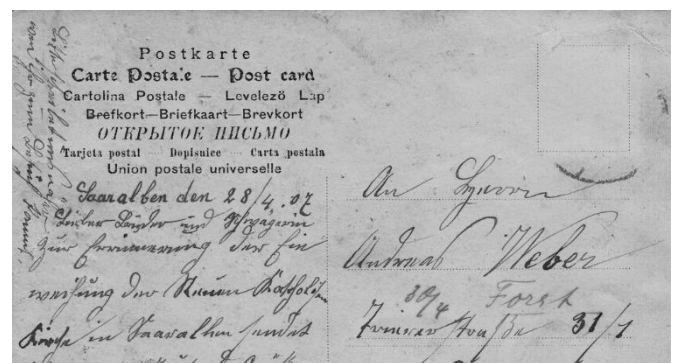 Postkarte
Carte Postale — Post card
Cartolina Postale — Levelező Lap
Brefkort—Briefkaart—Brevkort
ОТКРЫТОЕ ПИСЬМО
Tarjeta postal Dopisnice Carta postala
Union postale universelle
Saaralben den 28/4. 07
Lieber Bruder und Schwägerin
zur Erinnerung der Ein
weihung der Neuen Katholischen
Kirche in Saaralben sendet
An Herrn
Andreas Weber
30/4 Forst
Trierer Straße 31/1